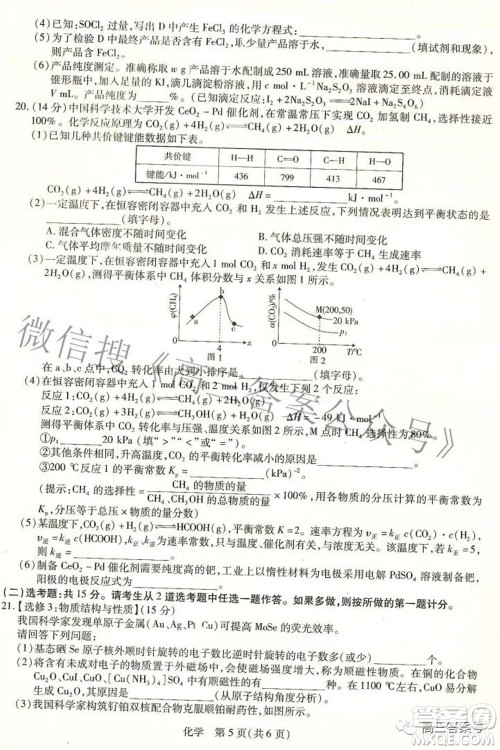 (4)已知:SOCl₂ 过量,写出 D 中产生 FeCl₃ 的化学方程式:
(5)为了检验 D 中最终产品是否含有 FeCl₂,取少量产品溶于水,(填试剂和现象),
则产品含 FeCl₂。
(6)产品纯度测定。准确称取 w g 产品溶于水配制成 250 mL 溶液,准确量取 25.00 mL 配制的溶液于
锥形瓶中,加入足量的 KI,滴几滴淀粉溶液,用 c mol·L⁻¹ Na₂S₂O₃ 溶液滴定至终点,消耗滴定液
V mL。该产品纯度为(已知滴定反应为 I₂+2Na₂S₂O₃══2NaI+Na₂S₄O₆)。
20.(14 分)中国科学技术大学开发 CeO₂-Pd 催化剂,在常温常压下实现 CO₂ 加氢制 CH₄,选择性接近
100%。化学反应原理为 CO₂(g)+4H₂(g)⇌CH₄(g)+2H₂O(g) ΔH。
(1)已知几种共价键键能数据如下表。
共价键 H—H C═O C—H H—O
键能/kJ·mol⁻¹ 436 799 413 467
CO₂(g)+4H₂(g)⇌CH₄(g)+2H₂O(g) ΔH= kJ·mol⁻¹。
(2)一定温度下,在恒容密闭容器中充入 CO₂ 和 H₂ 发生上述反应,下列情况表明达到平衡状态的是
(填字母)。
A.混合气体密度不随时间变化 B.气体总压强不随时间变化
C.气体平均摩尔质量不随时间变化 D.CO₂ 消耗速率等于 CH₄ 生成速率
(3)一定温度下,在恒容密闭容器中充入 1 mol CO₂ 和 x mol H₂,发生反应 CO₂(g)+4H₂(g)⇌CH₄(g)+
2H₂O(g),测得平衡体系中 CH₄ 体积分数与 x 关系如图 1 所示。
φ(CH₄) a b c 4 x
图 1
α(CO₂)/% M(200,50) 20 kPa p₁ 200 T/℃
图 2
在 a、b、c 点中,CO₂ 转化率由大到小排序是(填字母)。
(4)在恒容密闭容器中充入 1 mol CO₂
反应 1 CO₂(g)+4H₂(g)⇌CH₄(g)+2H₂O(g) ΔH₁<0
反应 2 CO₂(g)+3H₂(g)⇌CH₃OH(g)+H₂O(g)
测得平衡体系中 CO₂ 转化率与压强、温度关系如图 2 所示,M 点时 CH₄ 选择性为 80%。
①p₁ 20 kPa(填“>”“<”或“=”)。
②其他条件相同,升高温度,CO₂ 的平衡转化率减小的原因是
③200 ℃反应 1 的平衡常数 Kₚ= (kPa)⁻²。
(提示:CH₄ 的选择性= CH₄的物质的量/CH₄、CH₃OH 的总物质的量 ×100%,用各物质的分压计算的平衡常数为
Kₚ,分压等于总压×物质的量分数)
(5)某温度下,CO₂(g)+H₂(g)⇌HCOOH(g),平衡常数 K=2。速率方程为 v正=k正 c(CO₂)·c(H₂),
v逆=k逆 c(HCOOH),k正、k逆为速率常数,只与温度、催化剂有关,与浓度无关。该温度下,若 k正=5,
则 k逆= 。
(6)制备 CeO₂-Pd 催化剂需要纯度高的钯,工业上以惰性材料为电极采用电解 PdSO₄ 溶液制备钯,
阳极的电极反应式为
(二)选考题:共 15 分。请考生从 2 道选考题中任选一题作答。如果多做,则按所做的第一题计分。
21.【选修 3:物质结构与性质】(15 分)
我国科学家发现单原子金属(Au、Ag、Pt、Cu)可提高 MoSe 的析氢效率。
请回答下列问题:
(1)基态硒 Se 原子核外顺时针旋转的电子数比逆时针旋转的电子数多
(2)将含有未成对电子的物质置于外磁场中,会使磁场强度增大,称其为顺磁性物质。在铜的化合物
Cu₂O、CuCl、CuSO₄、[Cu(NH₃)₄]SO₄ 中,具有顺磁性的有
(3)我国科学家构筑钌铂双核配合物克服顺铂耐药性,例如:
化学 第 5 页(共 6 页)
微信搜《高三答案公众号》
高三答案号